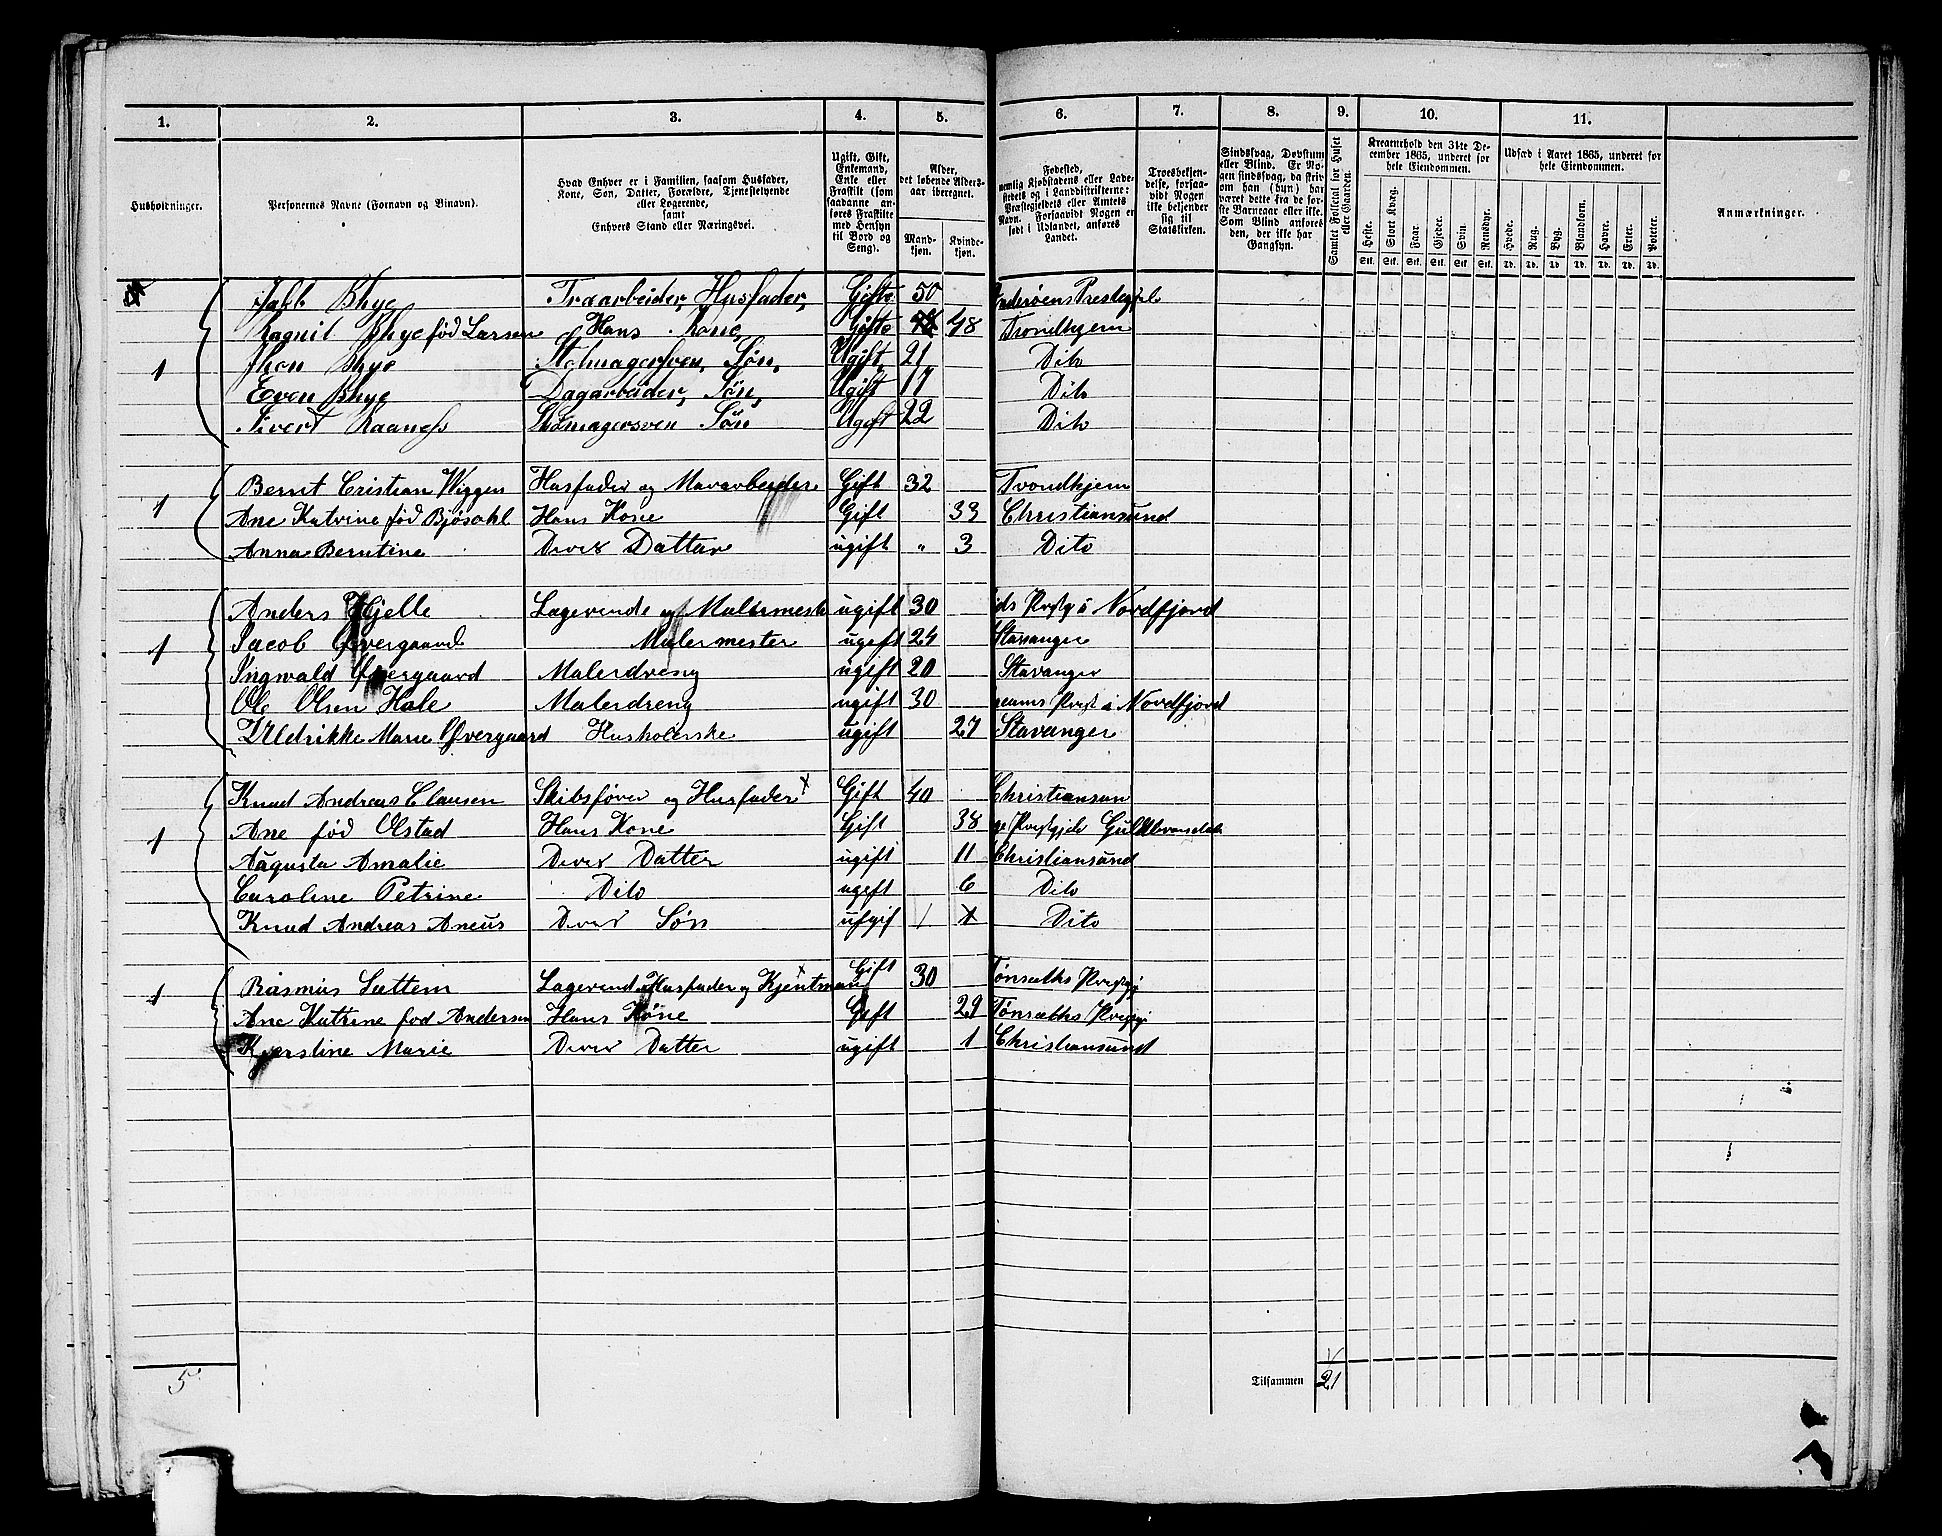 1. 2. 3. 4. 5. 6. 7. 8. 9. 10. 11.
Husholdninger.
Personernes Navne (Fornavn og Tilnavn).
Hvad Enhver er i Familien, saasom Husfader, Kone, Søn, Datter, Forældre, Tjenestetyende eller Logerende, samt Enhvers Stand eller Næringsvei.
Ugift, Gift, Enkemand, Enke eller Fraskilt (som saadanne anføres Fraskilte med Hensyn til Bord og Seng).
Alder, det løbende Alders-aar iberegnet.
Mand-kjøn. Kvinde-kjøn.
Fødested, nemlig Kjøbstadens eller Ladestedets og i Landdistrikterne: Præstegjeldets eller Amtets Navn. Forsaavidt Nogen er født i Udlandet, anføres Landet.
Troesbekjendelse, forsaavidt Nogen ikke bekjender sig til Statskirken.
Sindssvag, Døvstum eller Blind. Er Nogen sindssvag, da skrives om han (hun) har været dette fra de første Barneaar eller ikke. Som Blind anføres den, der ikke har Gangsyn.
Samlet Folketal for Huset eller Gaarden.
Kreaturhold den 31te December 1865, underet for hele Eiendommen.
Heste. Stort Kvæg. Faar. Gjeder. Svin. Rensdyr.
Stk. Stk. Stk. Stk. Stk. Stk.
Udsæd i Aaret 1865, underet for hele Eiendommen.
Hvede. Rug. Byg. Blandkorn. Havre. Erter. Poteter.
Td. Td. Td. Td. Td. Td. Td.
Anmærkninger.
Jakb Bhye Træarbeider, Husfader, Gifte 50 Præstegjel
Ragnil Bhye fød Larsen Hans Kone, Gifte 48 Trondhjem
1 Jhon Bhye Stolmagersven, Søn, Ugift 21 Dito
Even Bhye Dagarbeider, Søn, Ugift 17 Dito
Sivert Raaness Skomagersven Søn Ugift 22 Dito
1 Bernt Cristian Wiggen Husfader og Murarbeider Gift 32 Trondhjem
Ane Katrine fød Bjøsahl Hans Kone Gift 33 Christiansund
Anna Berntine Deres Datter ugift " 3 Dito
Anders Hjelle Lagerende og Malermester ugift 30 ids Prstgj i Nordfjord
1 Jacob Øvergaard Malermester ugift 24 Stavanger
Ingwald Øvergaard Malerdreng ugift 20 Stavanger
Ole Olsen Hale Malerdreng ugift 30 Nordfjord
Uldrikke Marie Øvergaard Husholerske ugift 27 Stavanger
Knud Andreas Clausen Skibsfører og Husfader Gift 40 Christiansun
1 Ane fød Olstad Hans Kone Gift 38
Augusta Amalie Deres Datter ugift 11 Christiansund
Caroline Petrine Dito ugift 6 Dito
Knud Andreas Aneus Deres Søn ufgif 1 Dito
1 Rasmus Sættem Lagerend Husfader og Kjentman Gift 30 Tønsæths Prestgj
Ane Katrine fød Andersen Hans Kone Gift 29 Tønsæths Prestgj
Kjerstine Marie Deres Datter ugift 1 Christiansund
5
Tilsammen 21